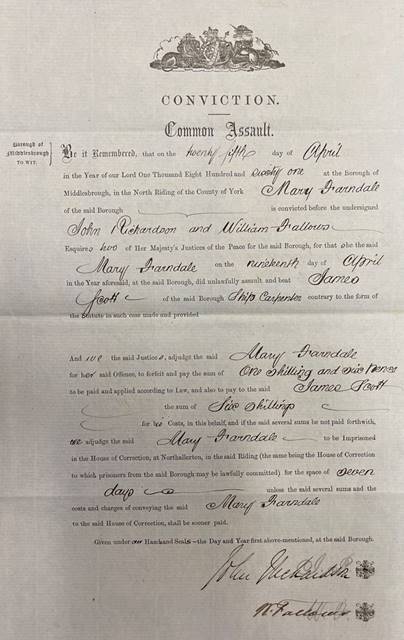 CONVICTION.
Common Assault.
Borough of
Middlesbrough
TO WIT.
Be it Remembered, that on the twenty fifth day of April
in the Year of our Lord One Thousand Eight Hundred and sixty one at the Borough of
Middlesbrough, in the North Riding of the County of York Mary Farndale
of the said Borough is convicted before the undersigned
John Richardson and William Fallows
Esquires two of Her Majesty's Justices of the Peace for the said Borough, for that she the said
Mary Farndale on the nineteenth day of April
in the Year aforesaid, at the said Borough, did unlawfully assault and beat James
Scott of the said Borough Ship Carpenter contrary to the form of
the Statute in such case made and provided
And we the said Justices, adjudge the said Mary Farndale
for her said Offence, to forfeit and pay the sum of One Shilling and six Pence
to be paid and applied according to Law, and also to pay to the said James Scott
the sum of Six Shillings
for his Costs, in this behalf, and if the said several sums be not paid forthwith,
we adjudge the said Mary Farndale to be Imprisoned
in the House of Correction, at Northallerton, in the said Riding (the same being the House of Correction
to which prisoners from the said Borough may be lawfully committed) for the space of seven
days unless the said several sums and the
costs and charges of conveying the said Mary Farndale
to the said House of Correction, shall be sooner paid.
Given under our Hands and Seals - the Day and Year first above-mentioned, at the said Borough.
John Richardson
W. Fallows